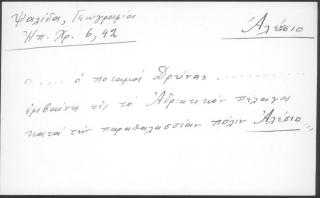 Ψαλίδα, Γεωγραφία
Ἠπ. Χρ. 6, 42
Ἀλέσιο
.... ὁ ποταμὸς Δρύνας ..........
ἐμβαίνει εἰς τὸ Ἀδριατικὸν πέλαγος
κατὰ τὴν παραθαλασσίαν πόλιν Ἀλέσιο